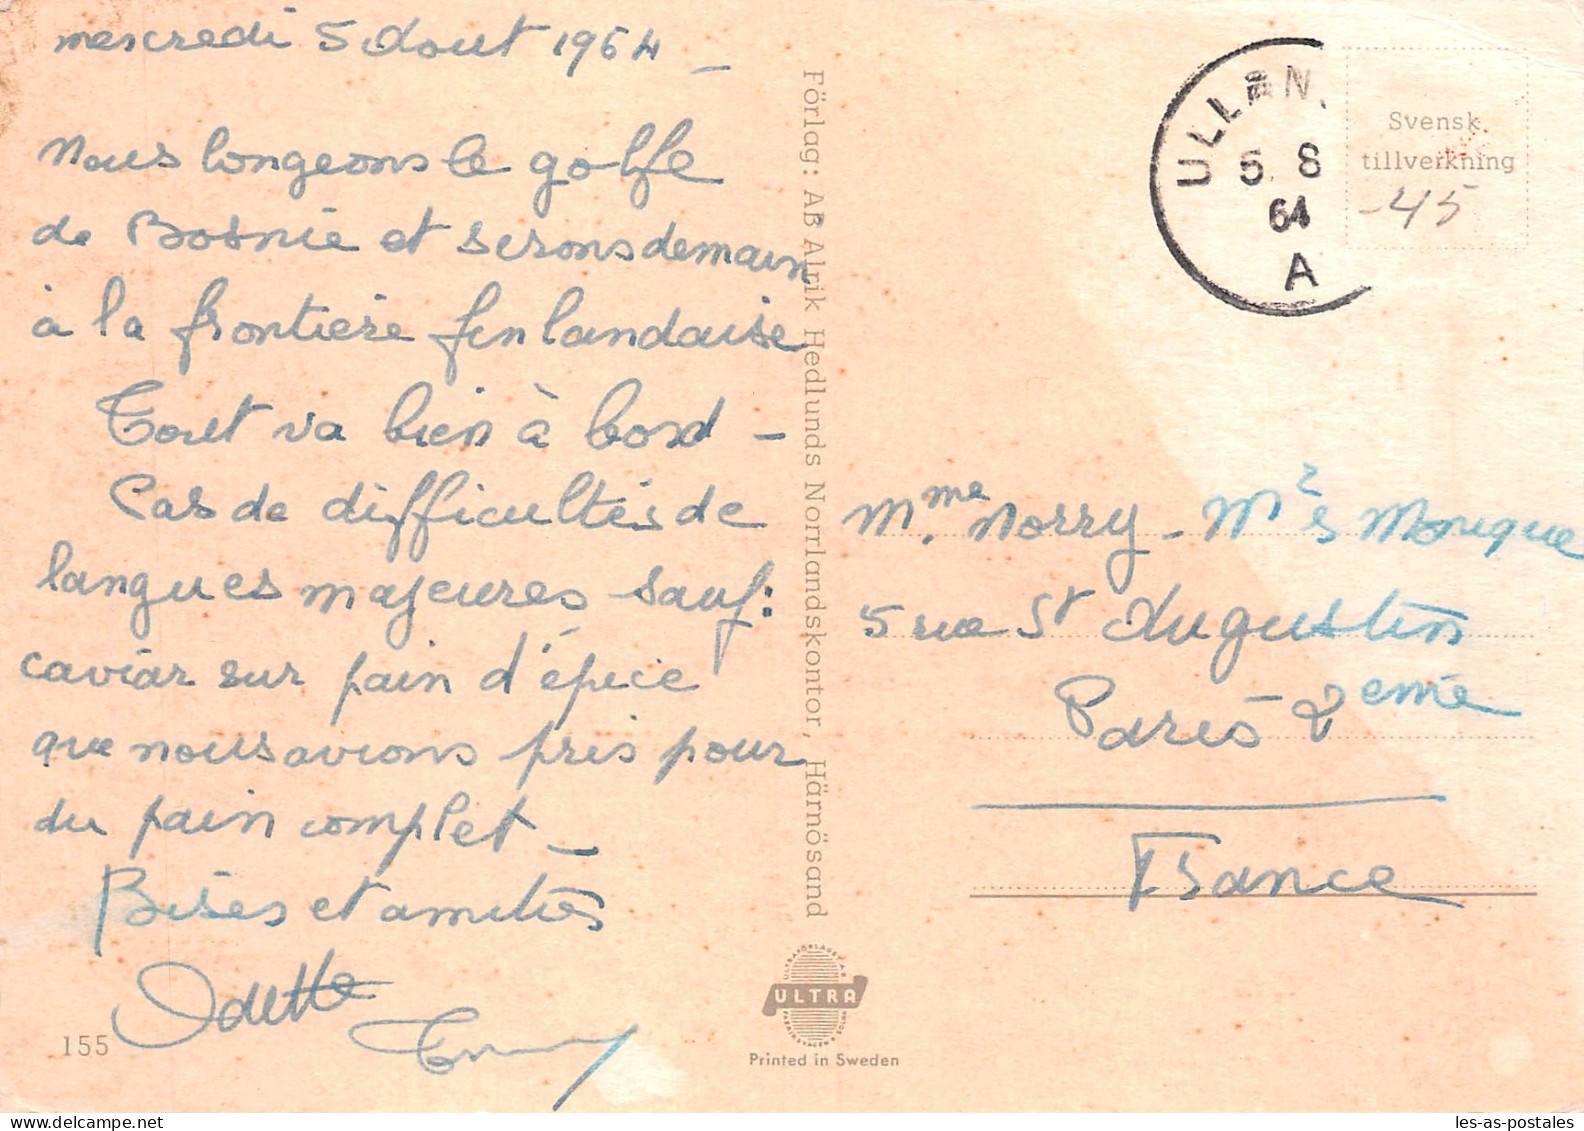 mercredi 5 Aout 1964 _
Nous longeons le golfe
de Botnie et serons demain
à la frontière finlandaise
Tout va bien à bord -
Pas de difficultés de
langues majeures sauf:
caviar sur pain d'épice
que nous avions pris pour
du pain complet _
Bises et amitiés
Odette
155
Förlag: AB Alrik Hedlunds Norrlandskontor, Härnösand
ULTRA
Printed in Sweden
ULLÅN.
5. 8
64
A
Svensk
tillverkning
-45
Mme Norry - Monique
5 rue St Augustin
Paris 2eme
France
les-as-postales